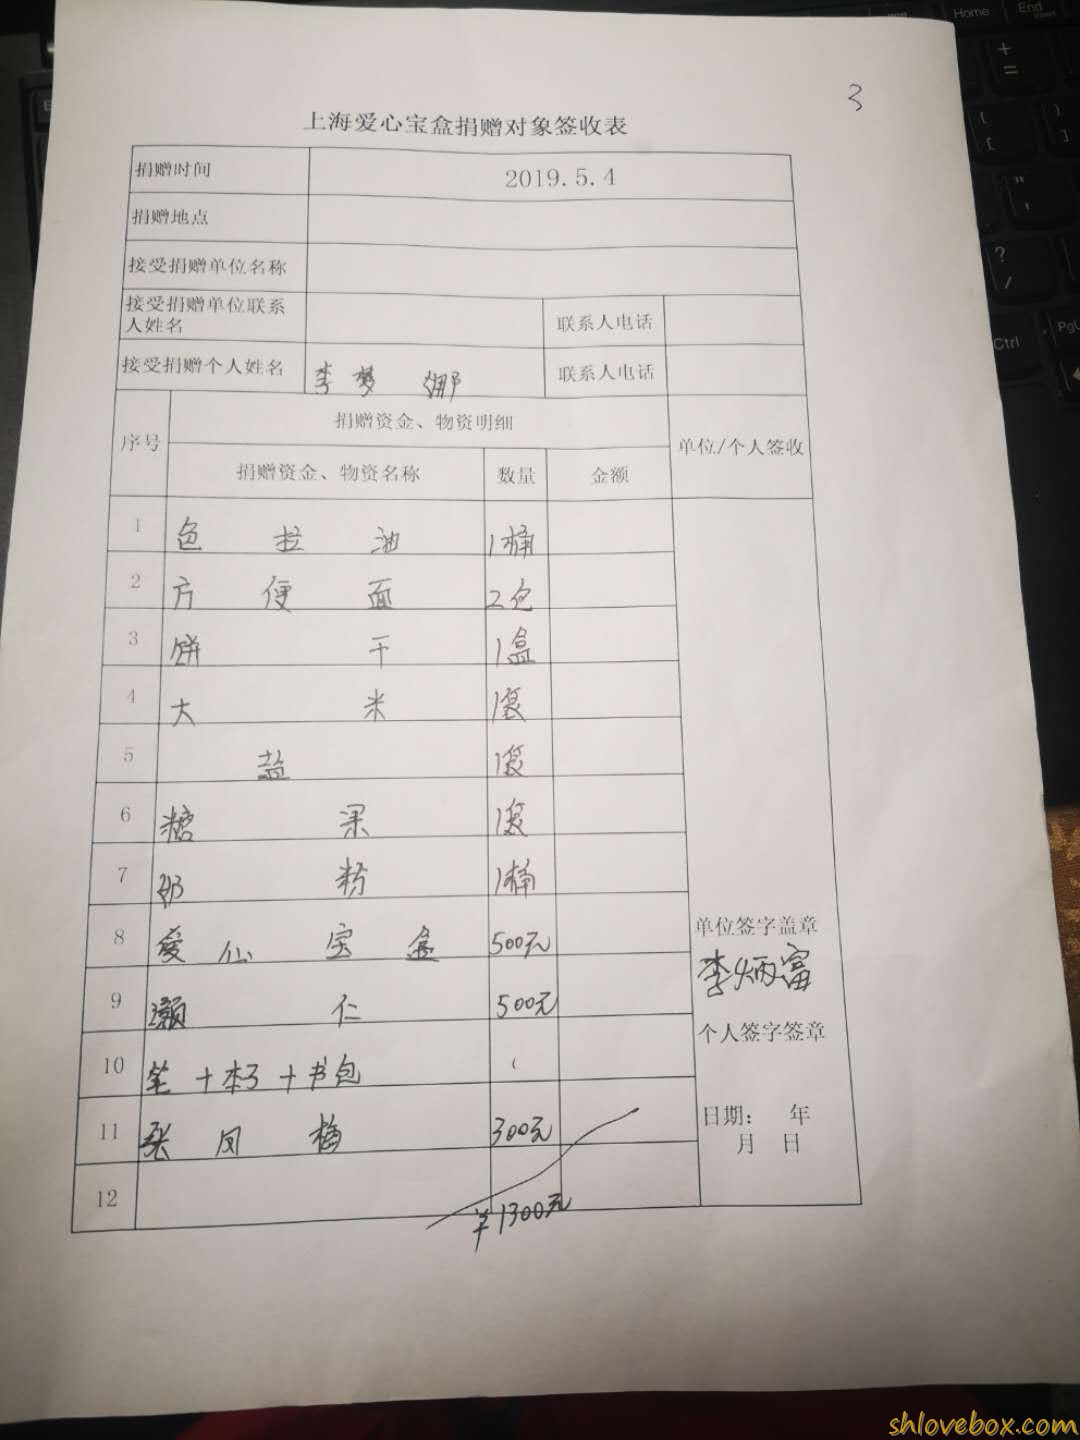 3
上海爱心宝盒捐赠对象签收表
捐赠时间 2019.5.4
捐赠地点
接受捐赠单位名称
接受捐赠单位联系人姓名 联系人电话
接受捐赠个人姓名 李梦娜 联系人电话
序号 捐赠资金、物资明细 单位/个人签收
捐赠资金、物资名称 数量 金额
1 色拉油 1桶
2 方便面 2包
3 饼干 1盒
4 大米 1袋
5 盐 1袋
6 糖果 1袋
7 奶粉 1桶
8 爱心宝盒 500元
9 灏仁 500元
10 笔+本子+书包
11 张凤梅 300元
12
¥1300元
单位签字盖章
李炳富
个人签字签章
日期: 年
月 日
Home
End
Ctrl
shlovebox.com